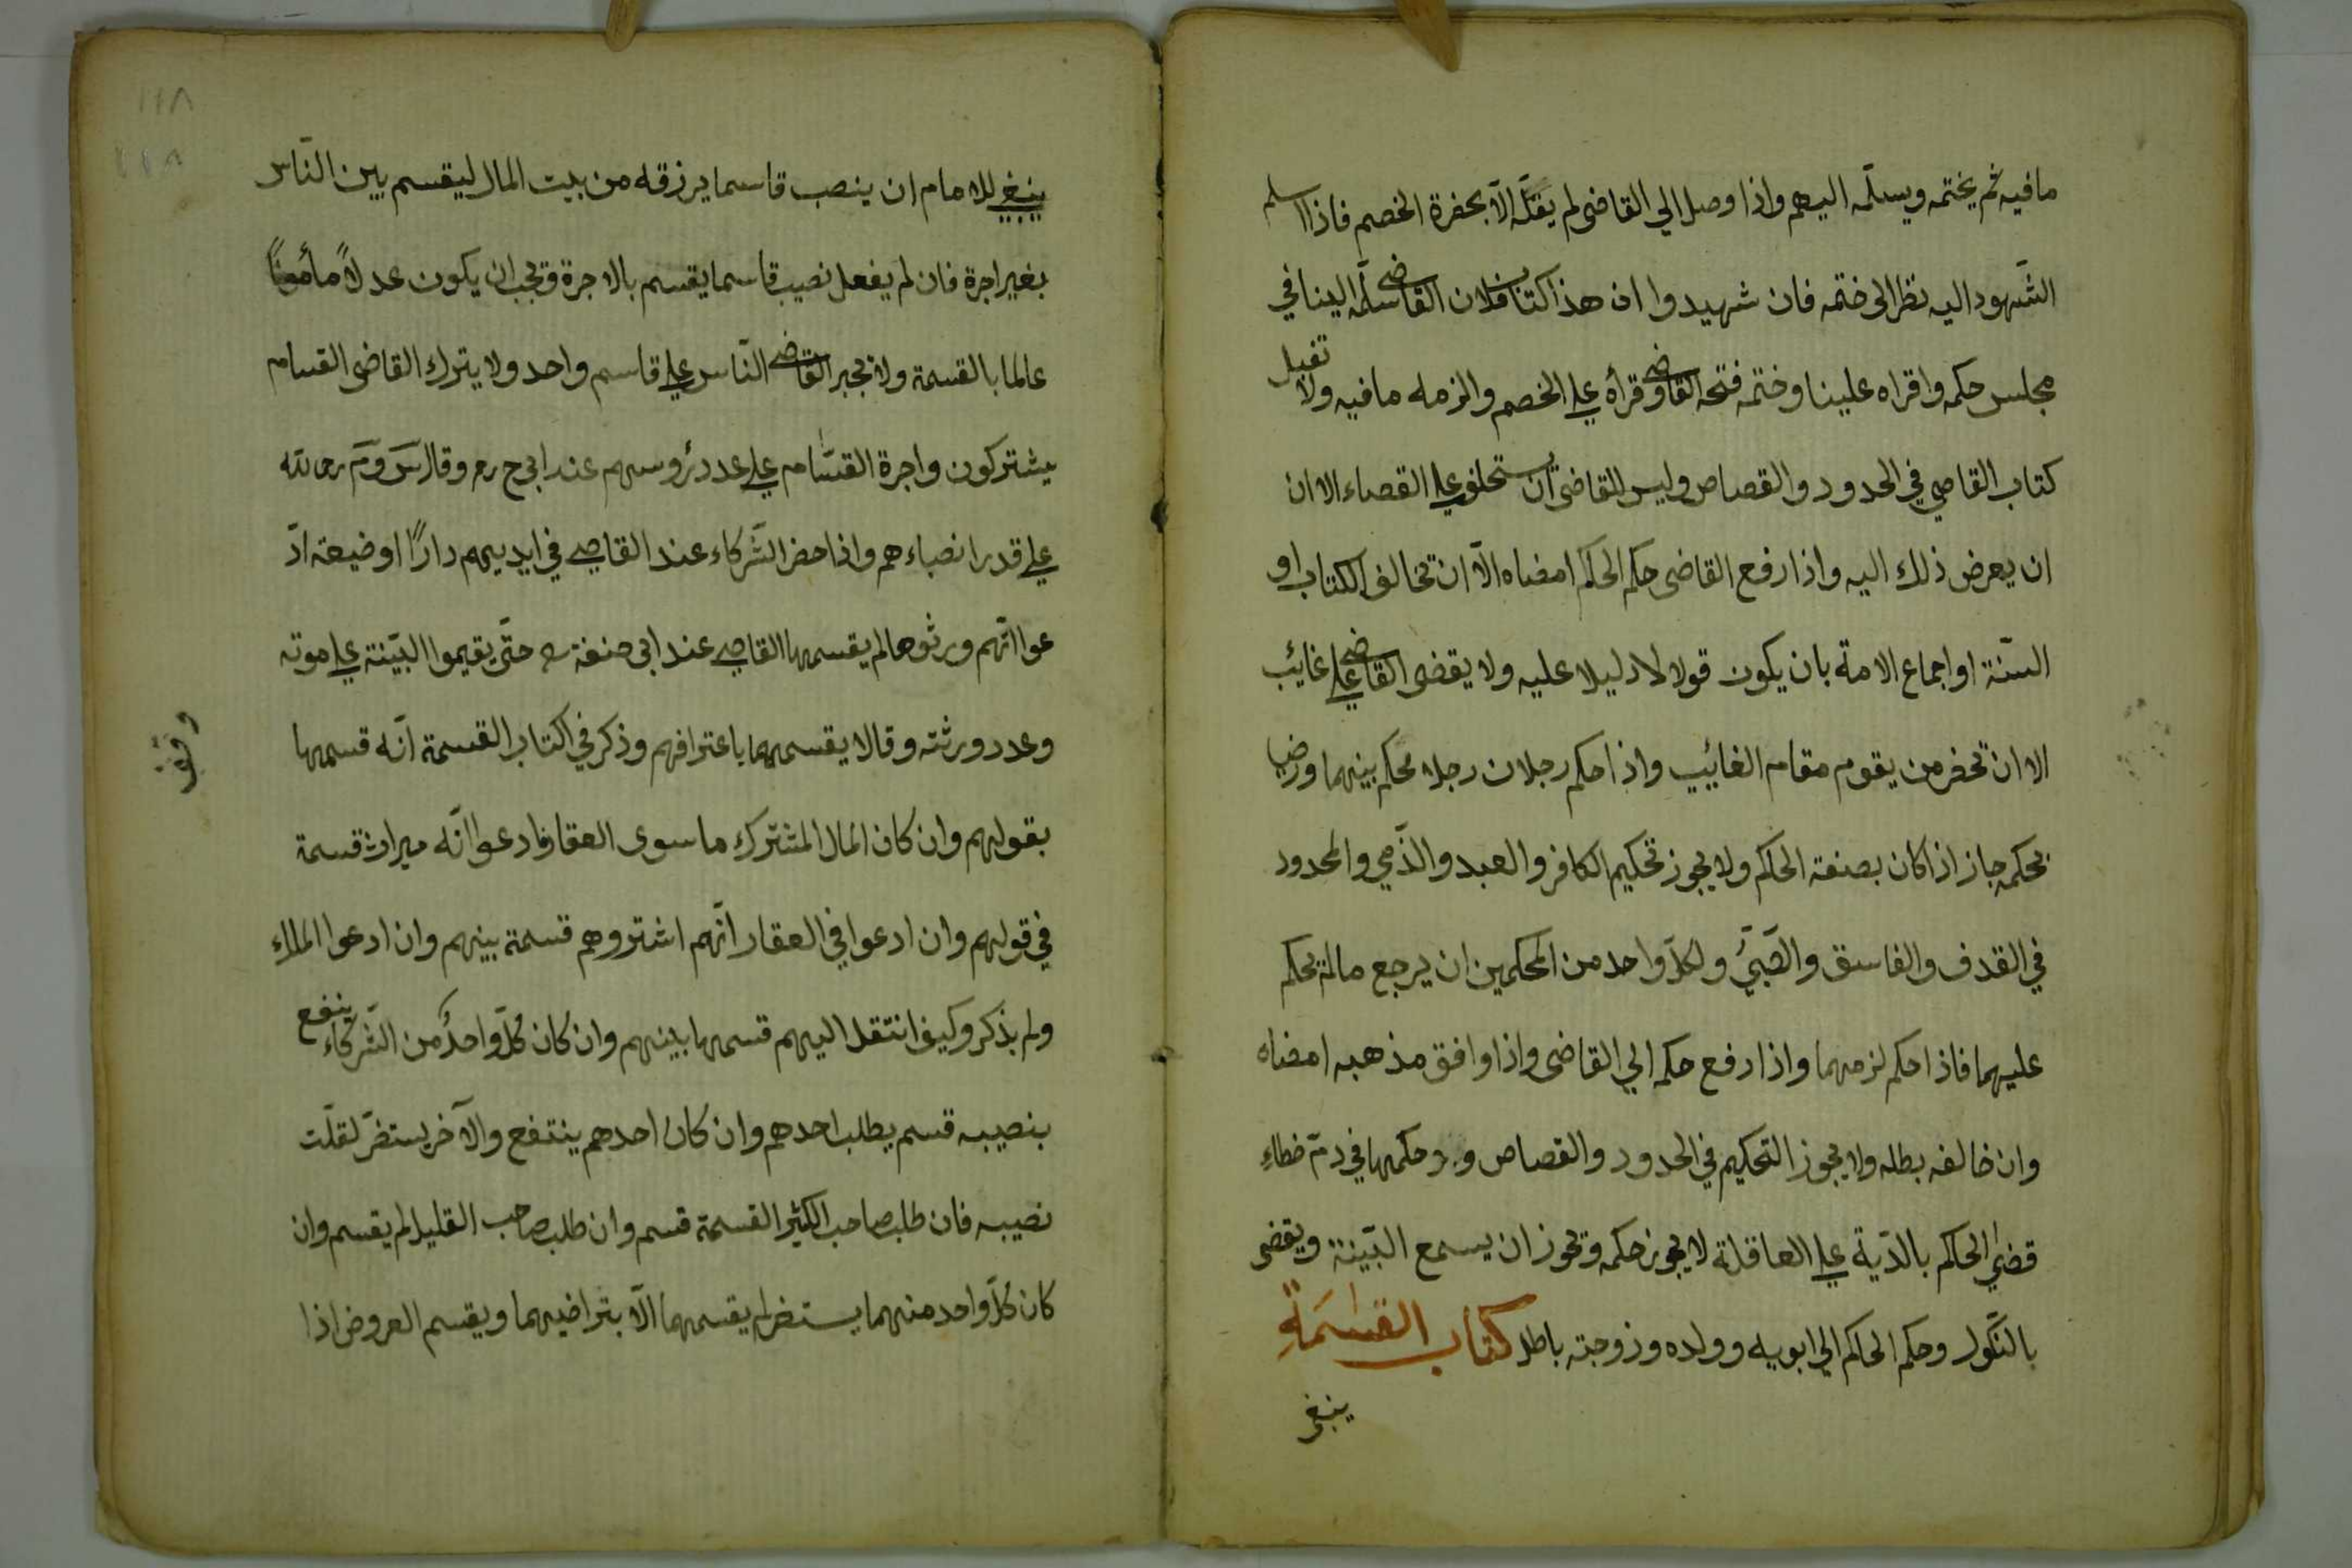 مافيه ثم يختمه ويسلّمه اليهم واذا وصل الي القاضى لم يقبّله الّا بحضرة الخصم فاذا اسلم
الشّهود اليه نظر الى ختمه فان شهيدوا ان هذا كتاب فلان القاضى سلّمه الينا في
مجلس حكمه واقراه علينا وختمه فتحه القاضى وقرأه علي الخصم والزمه مافيه ولا تقبل
كتاب القاصي في الحدود والقصاص وليس للقاضى ان يستخلف علي القصاء الا ان
ان يعرض ذلك اليه واذا رفع القاضى حكم الحاكم امضاه الّا ان تخالف الكتاب او
السّنة او اجماع الامة بان يكون قولا لا دليلا عليه ولا يقضى القاضى علي غايئب
الا ان تحضر من يقوم مقام الغائيب واذا حكم رجلان رجلا محكم بينهما ورضيا
بحكمه جاز اذا كان بصنعة الحاكم ولا يجوز تحكيم الكافر والعبد والذّمي والمحدود
في القدف والفاسق والصّبيّ ولكلّ واحد من المحكمين ان يرجع مالم يحكم
عليهما فاذا حكم لزمهما واذا رفع حكمه الي القاضى واذا وافق مذهبه امضاه
وان خالفه بطله ولا يجوز التحكيم في الحدود والقصاص و حكمها في دمّ خطاءِ
قضي الحاكم بالدّية علي العاقلة لا يجوز حكمه وتجوز ان يسمع البّينة ويقضى
بالنّكول وحكم الحاكم الي ابويه وولده وزوجته باطل كتاب القسمةِ
ينبغى
١١٨
١١٨
ينبغي للامام ان ينصب قاسما يرزقه من بيت المال ليقسم بين النّاس
بغير اجرة فان لم يفعل نصيب قاسما يقسم بالاجرة ويجب ان يكون عدلاً مأمونًا
عالما بالقسمة ولا يجبر القاضى النّاس علي قاسم واحد ولا يترك القاضى القسام
يشتركون واجرة القسّام علي عدد رؤسهم عند ابي ح رم وقال س وم رح لله
علي قدر انصباءهم واذا حضر الشّركاء عند القاصي في ايديهم دارًا او ضيعة ادّ
عوا انّهم ورثوها لم يقسمها القاصي عند ابى حنفة حتّى يقيموا البّينة علي موته
وعدد ورثته وقالا يقسمهما باعترافهم وذكر في اكتاب القسمة انّه قسمها
بقولهم وان كان المال المشترك ماسوى العقار فادعوا انّه ميراث قسمة
في قولهم وان ادعوا في العقار انّهم اشتروهم قسمة بينهم وان ادعوا الملاء
ولم يذكر وكيف انتقل اليهم قسمها بينهم وان كان كلّ واحدٌ من الشّركاء ينفع
بنصيبه قسم بطلب احدهم وان كان احدهم ينتفع والآخر يستضرّ لقلّت
نصيبه فان طلب صاحب الكثير القسمة قسم وان طلب صاحب القليل لم يقسم وان
كان كلّ واحد منهما يستضر لم يقسمهما الّا بتراضيهما ويقسم العروض اذا
وقف